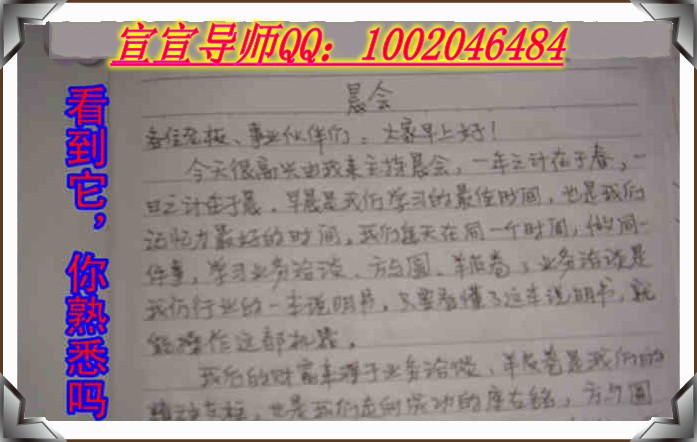 宣宣导师QQ：1002046484
看到它，你熟悉吗
晨会
各位老板、事业伙伴们：大家早上好！
今天很高兴由我来主持晨会，一年之计在于春，一
日之计在于晨，早晨是我们学习的最佳时间，也是我们
记忆力最好的时间，我们每天在同一个时间，做同一
件事，学习业务洽谈、方与圆、羊皮卷，业务洽谈是
我们行业的一本说明书，只要看懂了这本说明书，就
能操作这部机器。
我们的财富来源于业务洽谈，羊皮卷是我们的
精神支柱，也是我们走向成功的座右铭，方与圆